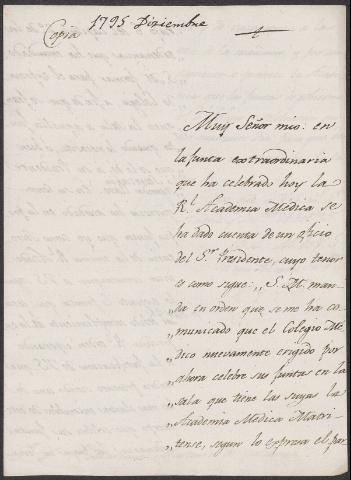 Copia 1795 Diziembre
Muy Señor mio: en
la Junta extraordinaria
que ha celebrado hoy la
Rl. Academia Medica se
ha dado cuenta de un oficio
del Sr. Presidente, cuyo tenor
es como sigue: „ S. M. man-
„ da en orden que se me ha co-
„ municado que el Colegio Me-
„ dico nuevamente erigido por
„ ahora celebre sus Juntas en la
„ sala que tiene las suyas la
„ Academia Medica Matri-
„ tense, segun lo expresa el par-